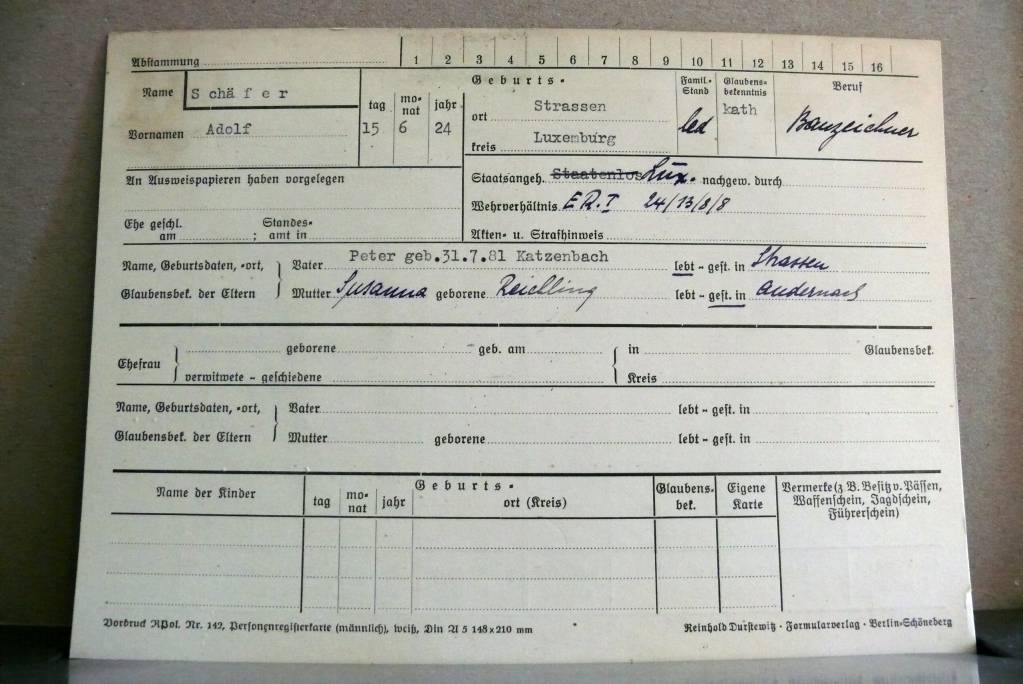 Abstammung 1 2 3 4 5 6 7 8 9 10 11 12 13 14 15 16
Name Schäfer
Vornamen Adolf
tag monat jahr
15 6 24
Geburts-
ort Strassen
kreis Luxemburg
Famil.-Stand led
Glaubensbekenntnis kath
Beruf
Bauzeichner
An Ausweispapieren haben vorgelegen
Staatsangeh. Staatenlos Lux. nachgew. durch
Wehrverhältnis E R. I 24/13/8/8
Ehe geschl. am ; Standesamt in
Akten- u. Strafhinweis
Name, Geburtsdaten, -ort, Vater Peter geb.31.7.81 Katzenbach lebt - gest. in Strassen
Glaubensbek. der Eltern Mutter Susanna geborene Reichling lebt - gest. in Andernach
Ehefrau geborene geb. am in Glaubensbek.
verwitwete - geschiedene Kreis
Name, Geburtsdaten, -ort, Vater lebt - gest. in
Glaubensbek. der Eltern Mutter geborene lebt - gest. in
Name der Kinder
Geburts-
tag monat jahr ort (Kreis)
Glaubensbek.
Eigene Karte
Vermerke (z. B. Besitz v. Pässen,
Waffenschein, Jagdschein,
Führerschein)
Vordruck RPol. Nr. 142, Personenregisterkarte (männlich), weiß, Din A 5 148 x 210 mm
Reinhold Durstewitz · Formularverlag · Berlin-Schöneberg